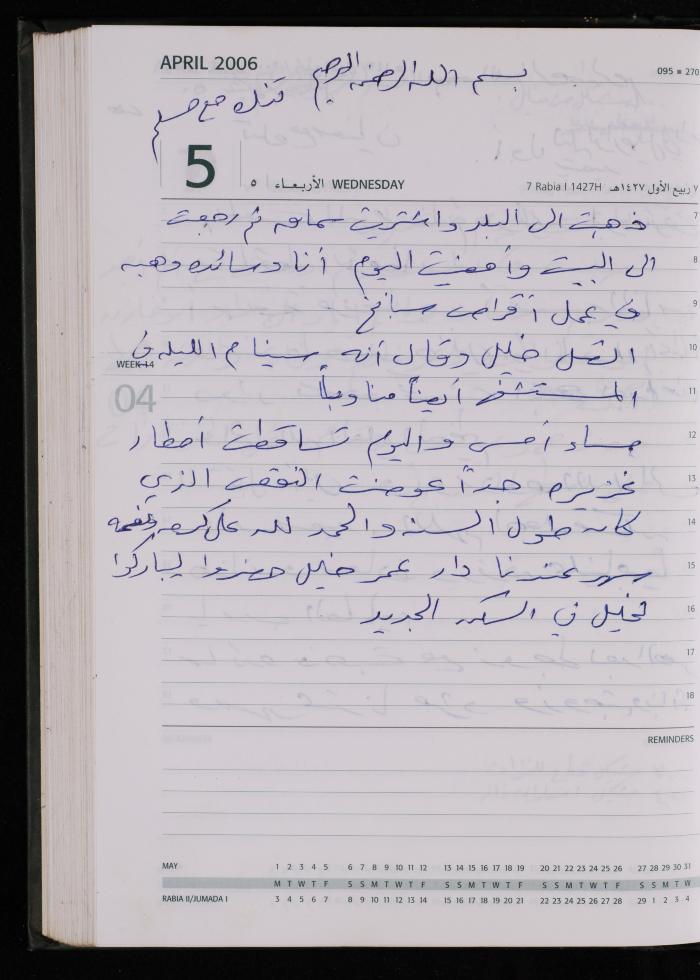 APRIL 2006
095 ■ 270
بسم الله الرحمن الرحيم
5
٥ الأربعاء WEDNESDAY
7 Rabia I 1427H ٧ ربيع الأول ١٤٢٧هـ
7
ذهبت الى البلد واشتريت ثم رجعت
8
الى البيت وأمضيت اليوم أنا وسائده وهبه
9
في عمل أقراص سبانخ
10
اتصل خليل وقال أنه سينام الليله في
WEEK 14
04
11
المستشفى أيضاً مناوباً
12
مساء أمس واليوم تساقطت أمطار
13
غزيره جداً عوضت النقص الذي
14
كان طول السنه والحمد لله على كرمه ونعمه
15
سهر عندنا دار عمر خليل حضروا ليباركوا
16
لخليل في السكن الجديد
17
18
REMINDERS
MAY 1 2 3 4 5 6 7 8 9 10 11 12 13 14 15 16 17 18 19 20 21 22 23 24 25 26 27 28 29 30 31
M T W T F S S M T W T F S S M T W T F S S M T W T F S S M T W
RABIA II/JUMADA I 3 4 5 6 7 8 9 10 11 12 13 14 15 16 17 18 19 20 21 22 23 24 25 26 27 28 29 1 2 3 4